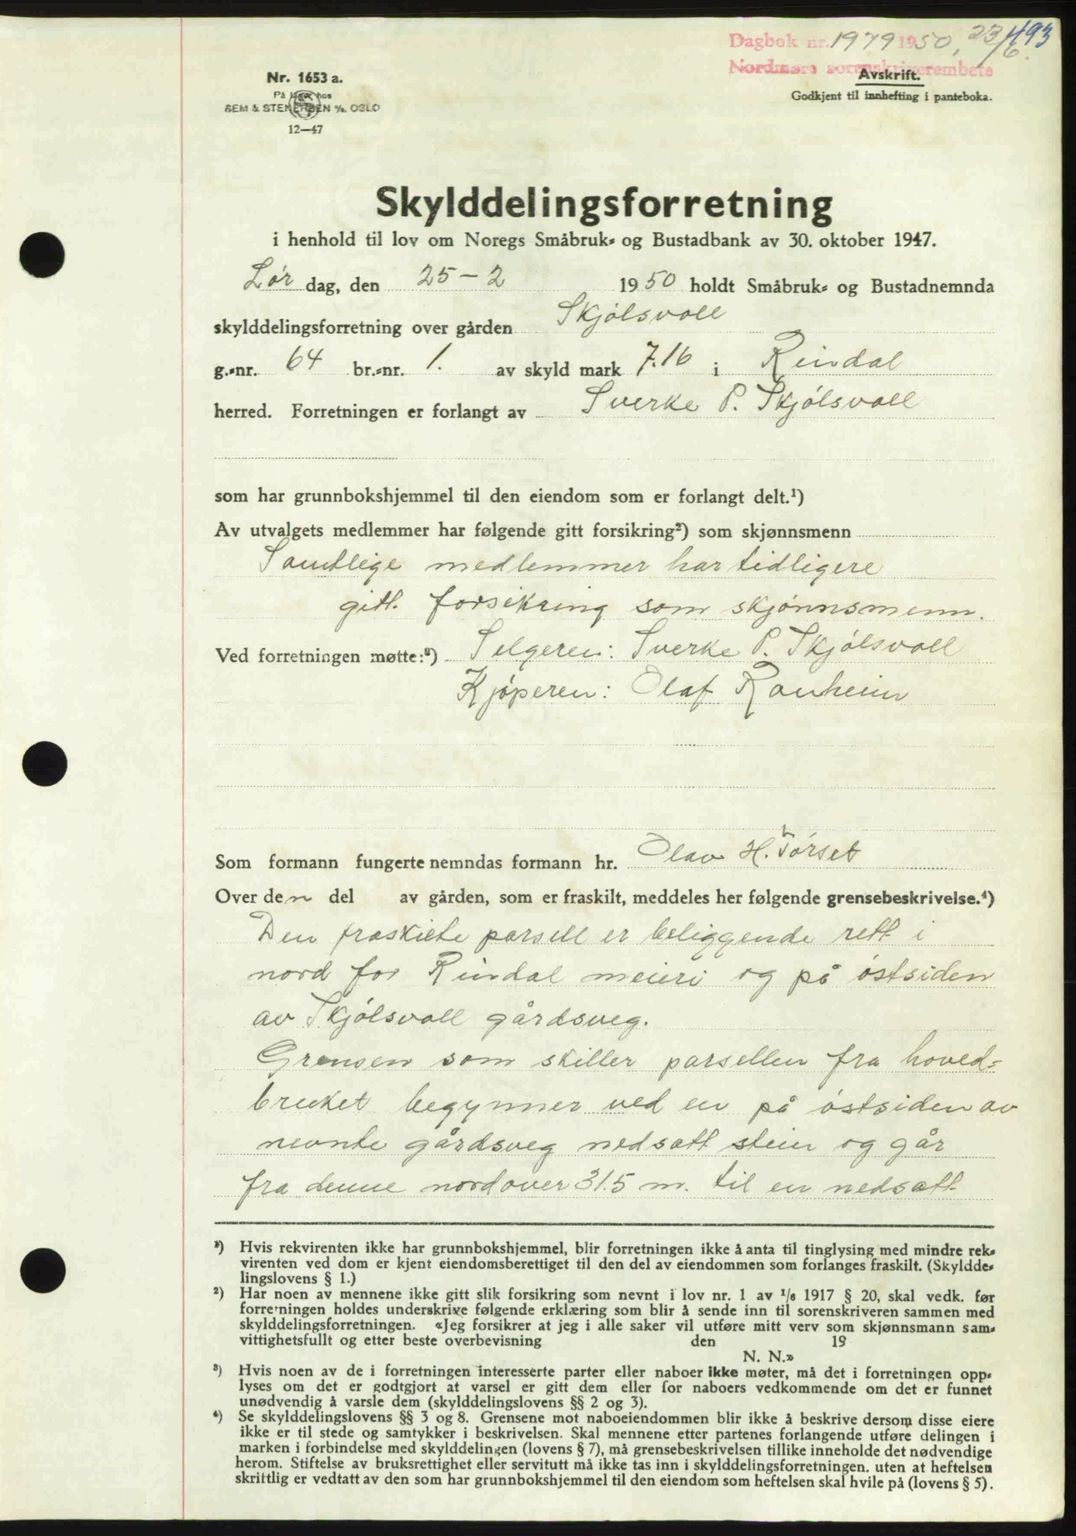 Dagbok nr. 1979 1950, 23/6. 493
Nordmøre sorenskriverembete
Nr. 1653 a.
På lager hos
SEM & STENERSEN A/S, OSLO
12—47
Avskrift.
Godkjent til innhefting i panteboka.
Skylddelingsforretning
i henhold til lov om Noregs Småbruk- og Bustadbank av 30. oktober 1947.
Lør dag, den 25-2 1950 holdt Småbruk- og Bustadnemnda
skylddelingsforretning over gården Skjølsvoll
g.-nr. 64 br.-nr. 1. av skyld mark 7.16 i Rindal
herred. Forretningen er forlangt av Sverke P. Skjølsvoll
som har grunnbokshjemmel til den eiendom som er forlangt delt.¹)
Av utvalgets medlemmer har følgende gitt forsikring²) som skjønnsmenn
Samtlige medlemmer har tidligere
gitt forsikring som skjønnsmenn.
Ved forretningen møtte:³) Selgeren: Sverke P. Skjølsvoll
Kjøperen: Olaf Ranheim
Som formann fungerte nemndas formann hr. Olav H. Tørset
Over den del av gården, som er fraskilt, meddeles her følgende grensebeskrivelse.⁴)
Den fraskilte parsell er beliggende rett i
nord for Rindal meieri og på østsiden
av Skjølsvoll gårdsveg.
Grensen som skiller parsellen fra hoved-
bruket begynner ved en på østsiden av
nevnte gårdsveg nedsatt stein og går
fra denne nordover 31.5 m. til en nedsatt
¹) Hvis rekvirenten ikke har grunnbokshjemmel, blir forretningen ikke å anta til tinglysing med mindre rek-
virenten ved dom er kjent eiendomsberettiget til den del av eiendommen som forlanges fraskilt. (Skyldde-
lingslovens § 1.)
²) Har noen av mennene ikke gitt slik forsikring som nevnt i lov nr. 1 av 1/6 1917 § 20, skal vedk. før
forretningen holdes underskrive følgende erklæring som blir å sende inn til sorenskriveren sammen med
skylddelingsforretningen. «Jeg forsikrer at jeg i alle saker vil utføre mitt verv som skjønnsmann sam-
vittighetsfullt og etter beste overbevisning den 19
N. N.»
³) Hvis noen av de i forretningen interesserte parter eller naboer ikke møter, må det i forretningen opp-
lyses om det er godtgjort at varsel er gitt dem eller for naboers vedkommende om det er funnet
unødvendig å varsle dem (skylddelingslovens §§ 2 og 3).
⁴) Se skylddelingslovens §§ 3 og 8. Grensene mot naboeiendommen blir ikke å beskrive dersom disse eiere
ikke er til stede og samtykker i beskrivelsen. Skal mennene etter partenes forlangende utføre delingen i
marken i forbindelse med skylddelingen (lovens § 7), må grensebeskrivelsen tillike inneholde det nødvendige
herom. Stiftelse av bruksrettighet eller servitutt må ikke tas inn i skylddelingsforretningen, uten at heftelsen
skriftlig er vedtatt av den som har grunnbokshjemmel til den eiendom som heftelsen skal hvile på (lovens § 5).